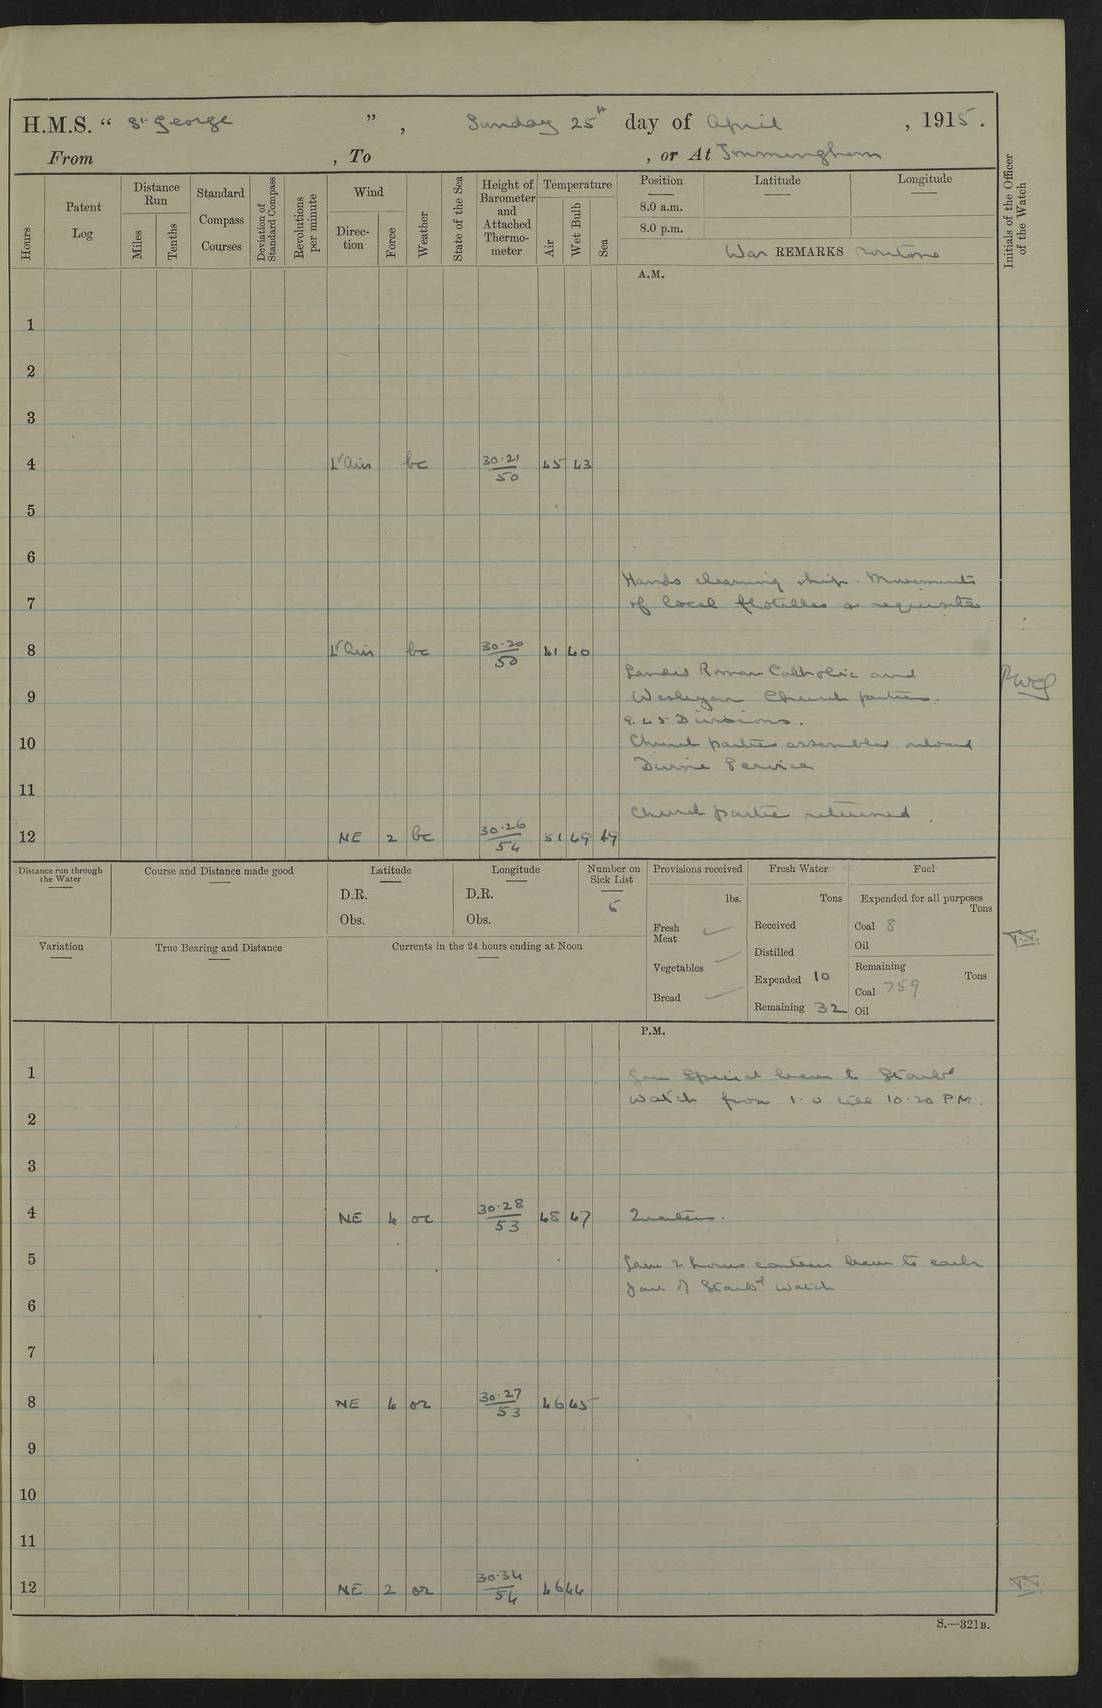 H.M.S. “ St. George ” , Sunday 25th day of April , 1915 .
From , To , or At Immingham
Hours
Patent Log
Distance Run
Miles
Tenths
Standard Compass Courses
Deviation of Standard Compass
Revolutions per minute
Wind
Direction
Force
Weather
State of the Sea
Height of Barometer and Attached Thermometer
Temperature
Air
Wet Bulb
Sea
Position Latitude Longitude
8.0 a.m.
8.0 p.m.
War REMARKS routine
Initials of the Officer of the Watch
A.M.
1
2
3
4 Lt Airs bc 30.21/50 45 43
5
6
Hands cleaning ship. Movements
7 of local flotillas as requisite
8 Lt Airs bc 30.20/50 41 40
Landed Roman Catholic and
9 Wesleyan Church parties.
9.45 Divisions.
10 Church parties assembled
Divine Service
11
Church parties returned.
12 NE 2 bc 30.26/54 51 49 49
Distance run through the Water
Course and Distance made good
Latitude
D.R.
Obs.
Longitude
D.R.
Obs.
Number on Sick List
Provisions received
lbs.
Fresh Meat
Vegetables
Bread
Fresh Water
Tons
Received
Distilled
Expended 10
Remaining 32
Fuel
Expended for all purposes
Tons
Coal 8
Oil
Remaining
Tons
Coal 759
Oil
Variation
True Bearing and Distance
Currents in the 24 hours ending at Noon
P.M.
1 Gave Special leave to Starbd
Watch from 1.0 till 10.20 PM.
2
3
4 NE 4 oc 30.28/53 48 47 Quarters.
5 Gave 2 hours canteen leave to each
part of Starbd Watch
6
7
8 NE 4 or 30.27/53 46 45
9
10
11
12 NE 2 or 30.34/54 46 44
S.—321B.